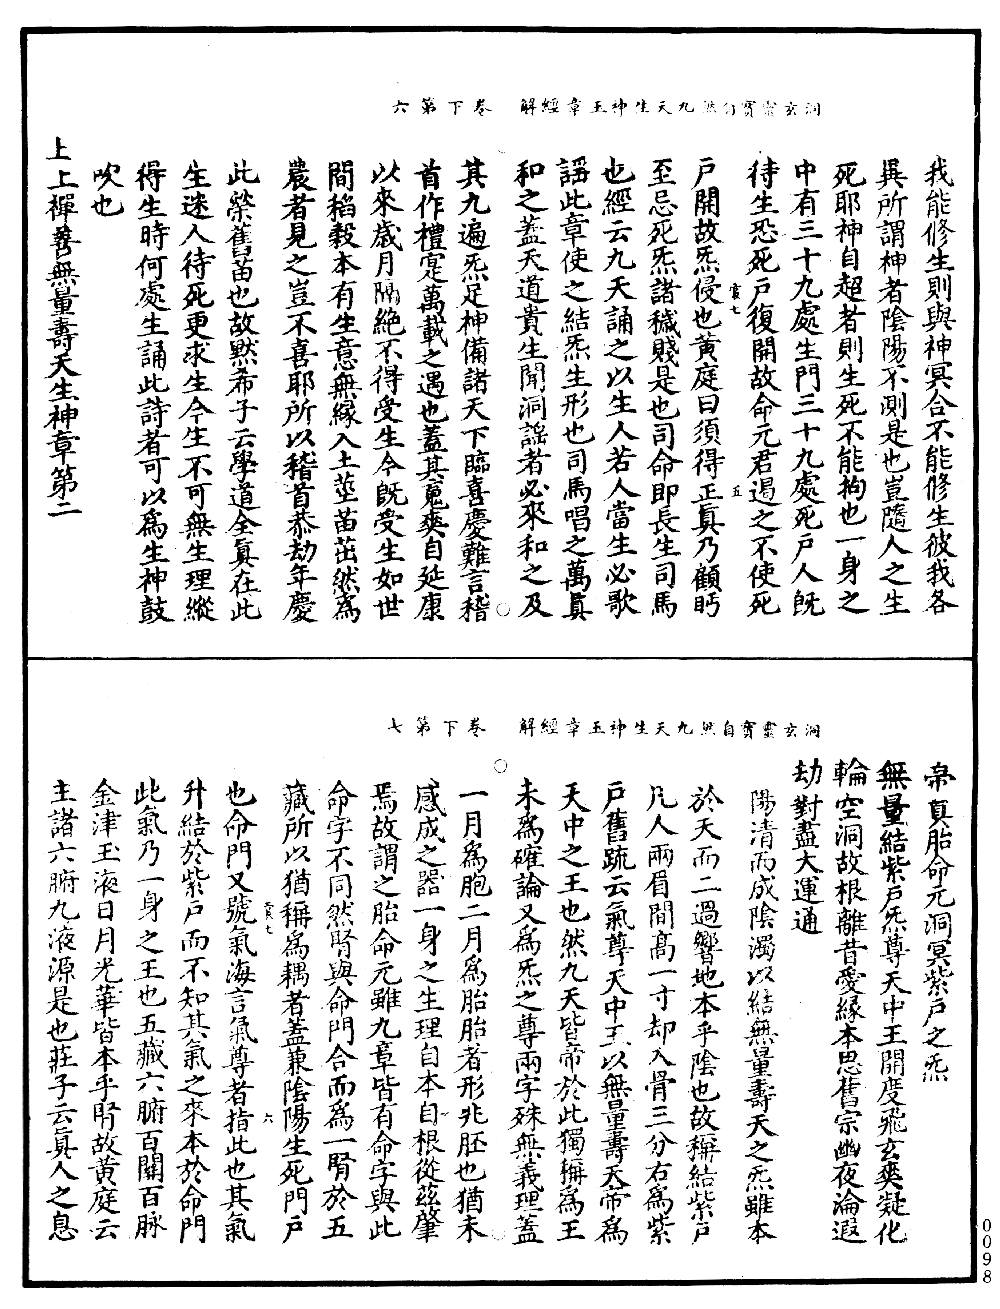 洞玄靈寶自然九天生神玉章經解　卷下第六
我能修生則與神冥合不能修生彼我各
異所謂神者陰陽不測是也豈隨人之生
死耶神自超者則生死不能拘也一身之
中有三十九處生門三十九處死戶人旣
待生恐死戶復開故命元君遏之不使死
戶開故炁侵也黃庭曰須得正眞乃顧眄
至忌死炁諸穢賤是也司命即長生司馬
也經云九天誦之以生人若人當生必歌
謡此章使之結炁生形也司馬唱之萬眞
和之蓋天道貴生聞洞謡者必來和之及
其九遍炁足神備諸天下臨喜慶難言稽
首作禮寔萬載之遇也蓋其䰟爽自延康
以來歲月隔絶不得受生今旣受生如世
間稻穀本有生意無緣入土莖苗茁然爲
農者見之豈不喜耶所以稽首恭劫年慶
此榮舊苗也故黙希子云學道全眞在此
生迷人待死更求生今生不可無生理縱
得生時何處生誦此詩者可以爲生神鼓
吹也
上上禪善無量壽天生神章第二
洞玄靈寶自然九天生神玉章經解　卷下第七
帝眞胎命元洞冥紫戶之炁
無量結紫戶炁尊天中王開度飛玄爽凝化
輪空洞故根離昔愛緣本思舊宗幽夜淪遐
劫對盡大運通
陽清而成陰濁以結無量壽天之炁雖本
於天而二過響地本乎陰也故稱結紫戶
凡人兩眉間高一寸却入骨三分右爲紫
戶舊䟽云氣尊天中王以無量壽天帝爲
天中之王也然九天皆帝於此獨稱爲王
未爲確論又爲炁之尊兩字殊無義理蓋
一月爲胞二月爲胎胎者形兆胚也猶未
感成之器一身之生理自本自根從茲肇
焉故謂之胎命元雖九章皆有命字與此
命字不同然腎與命門合而爲一腎於五
藏所以猶稱爲耦者蓋兼陰陽生死門戶
也命門又號氣海言氣尊者指此也其氣
升結於紫戶而不知其氣之來本於命門
此氣乃一身之王也五藏六腑百關百脉
金津玉液日月光華皆本乎腎故黃庭云
主諸六腑九液源是也莊子云眞人之息
0098